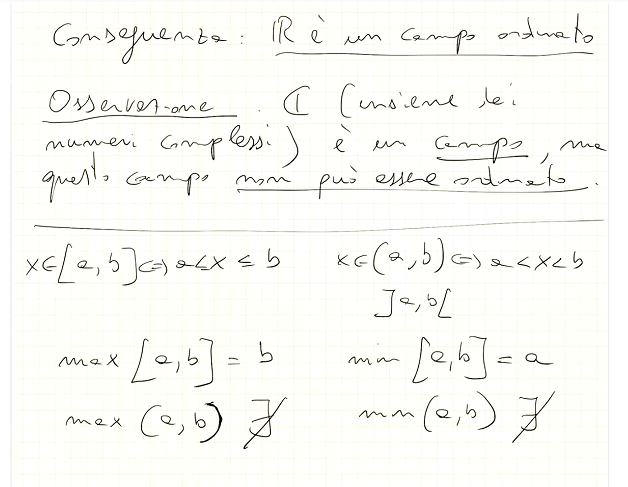 Conseguenza: ℝ è un campo ordinato
Osservazione. ℂ (insieme dei
numeri complessi) è un campo, ma
questo campo non può essere ordinato.
x∈[a,b]⟺a<x≤b x∈(a,b)⟺a<x<b
]a,b[
max [a,b] = b min [a,b] = a
max (a,b) ∄ min (a,b) ∄